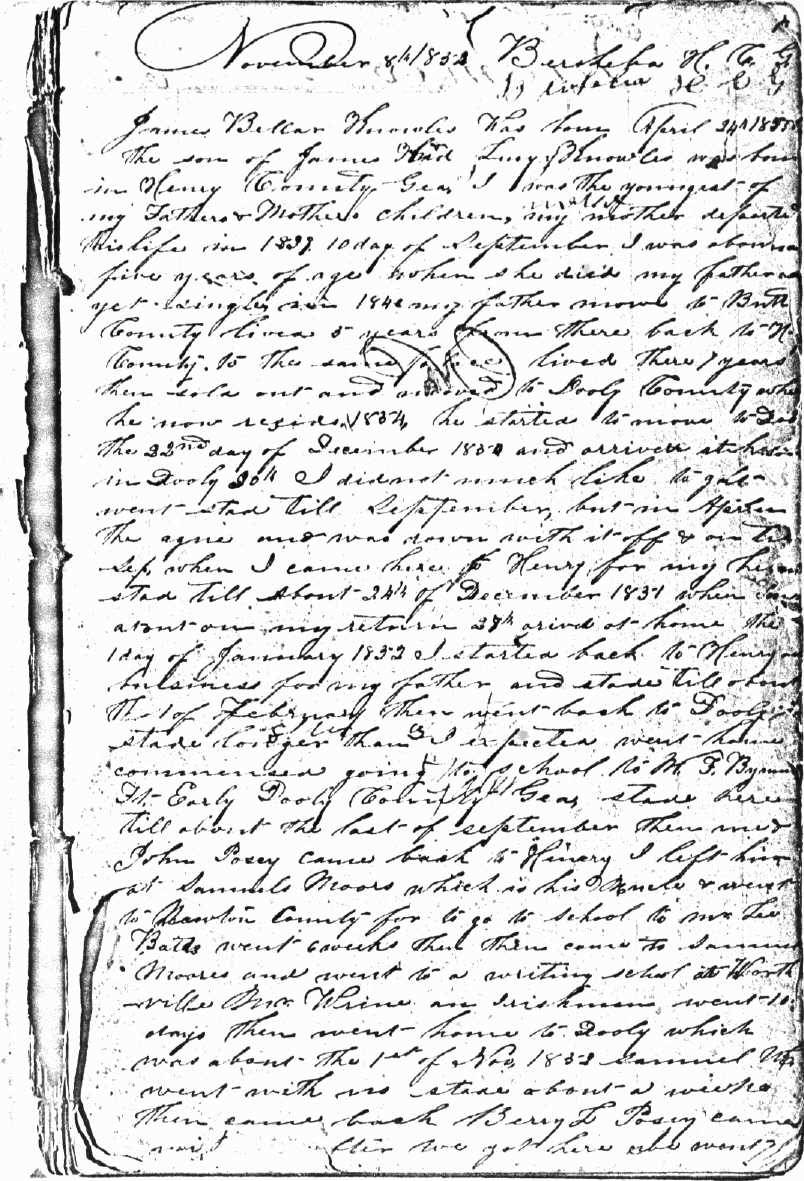 November 8th 1852 Bersheba H. C. G
James Bellar Knowles was born April 24th
the son of James and Lucy Knowles was born
in Henry County Gea, I was the youngest of
my Fathers & Mothers children, my mother departed
this life in 1837 10 day of September I was about
five years of age when she died my father
yet single, in my father move to Butts
County lived 5 years from there back to
County. to the same place lived there 7 years
then sold out and moved to Dooly County
he now resids, he started to move to
the 22nd day of December and arrived at
in Dooly 30th I did not much like to
went stad till Septtember, but in April
the ague and was down with it off & on
Sep, when I came here to Henry, for my
stad till about 24th of December 1851 when
about on my return 28th arived at home the
1 day of January 1852 I started back to Henry
buisness for my father and stade till about
the 1 of February then went back to Dooly
stade longer than I expected went home
commensed going to school to W. F.
Ft Early Dooly County Gea, stade here
till about the last of september then me &
John Posey came back to Hinery I left him
at Samuels Moors which is his Uncle & went
to Newton County for to go to school to mr Lee
Batts went 6 weeks then then came to
Moores and went to a writing schol at Worth
ville Mr. an Irishman went 10
days then went home to Dooly which
was about the 1st of Nov, 1852 Samuel
went with me stade about a week
then came back Berry L Posey came
after we got here we went